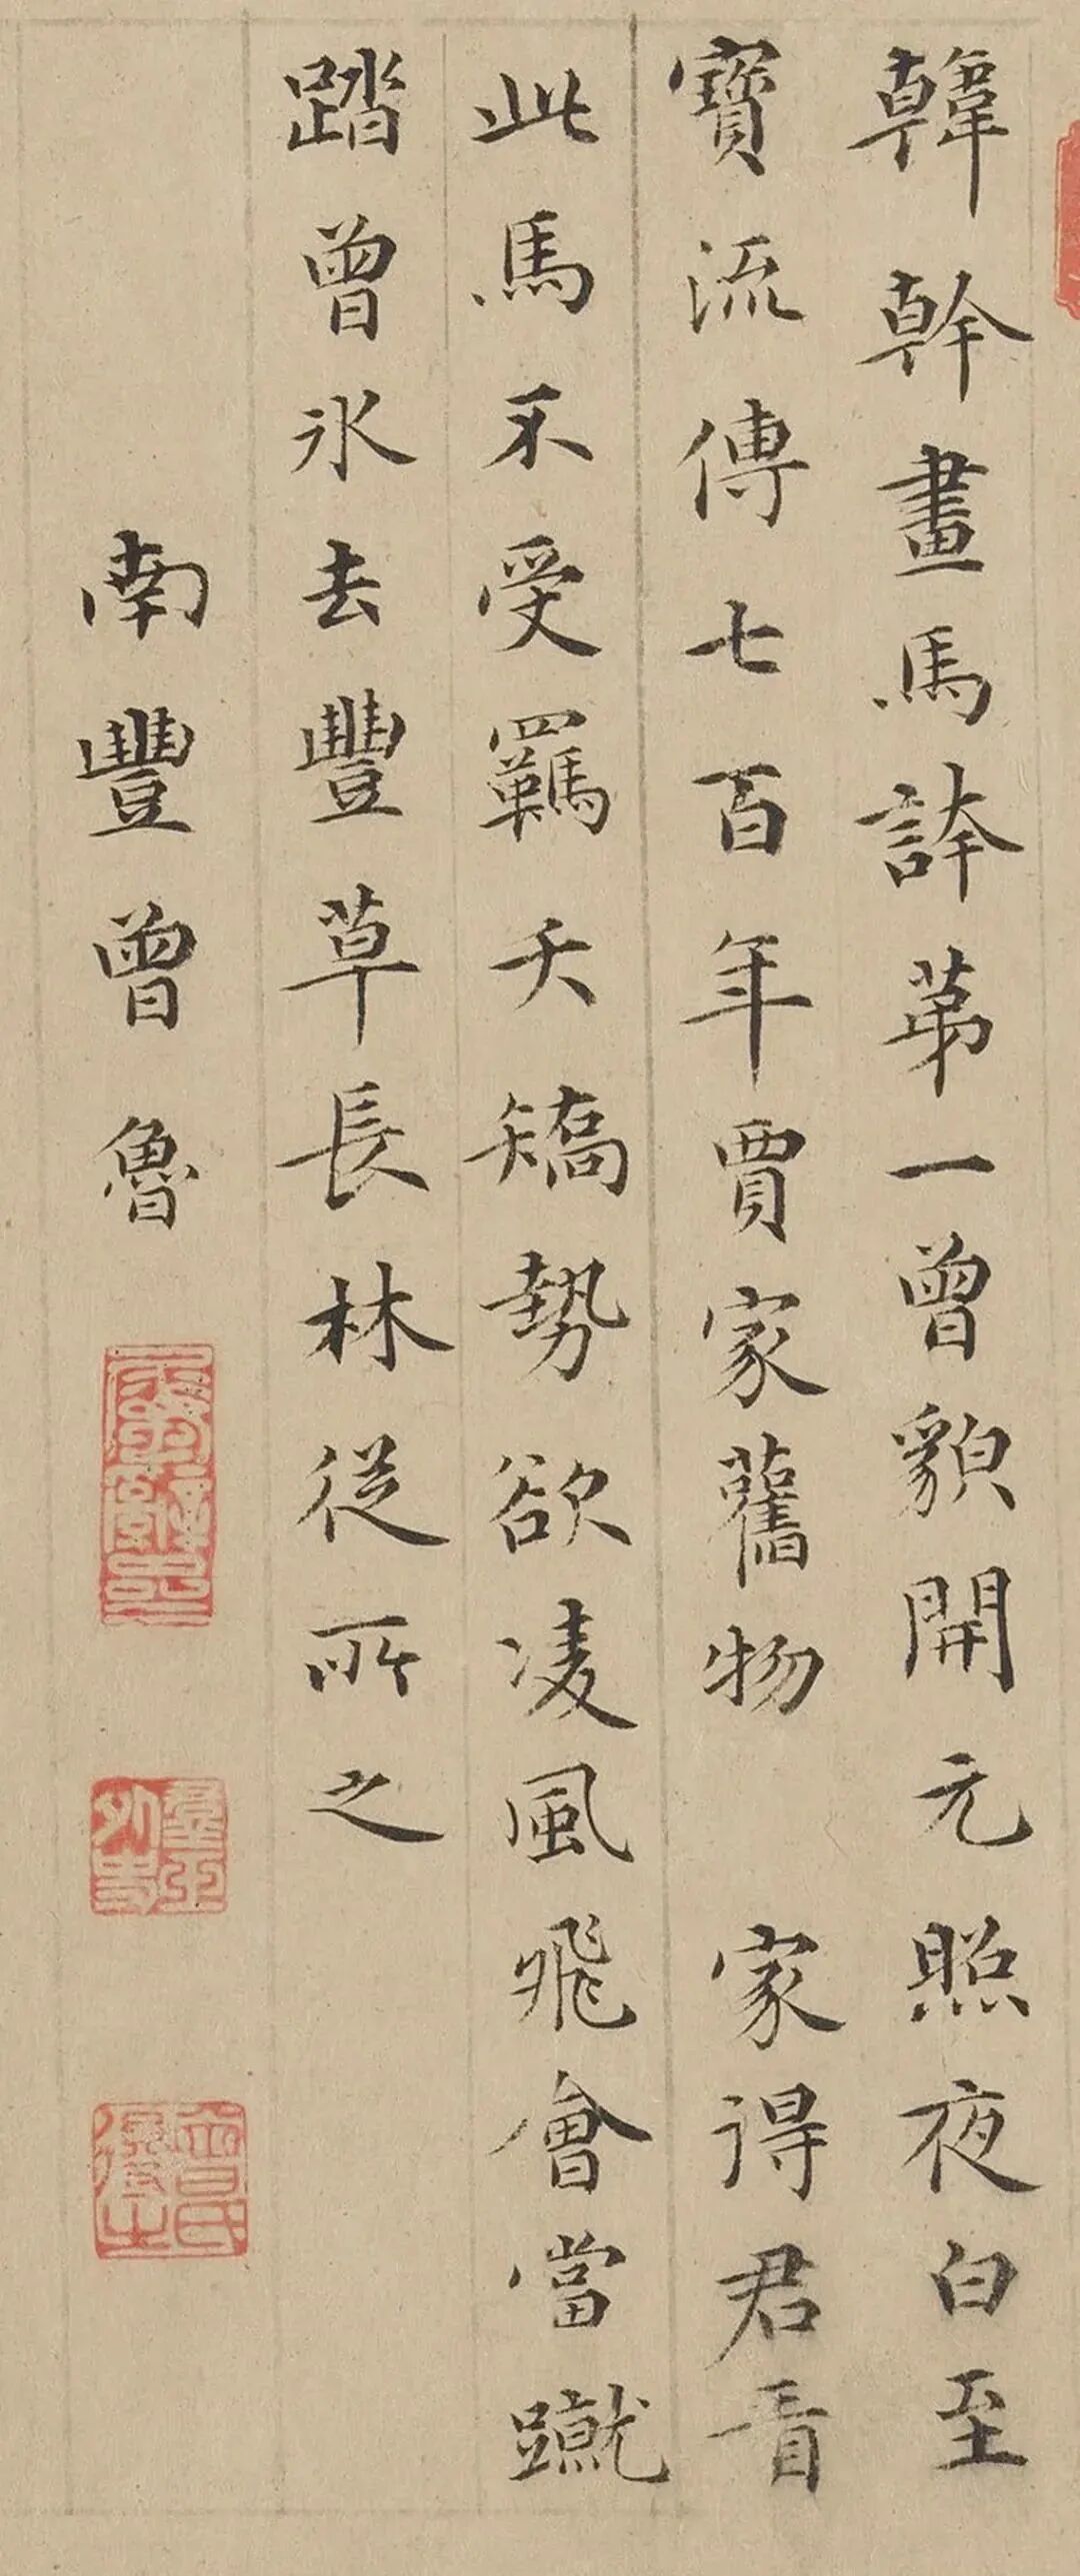 韓幹畫馬誇第一曾貌開元照夜白至
寶流傳七百年賈家舊物 家得君看
此馬不受羈夭矯勢欲凌風飛會當蹴
踏曾氷去豐草長林從所之
南豐曾魯
曾氏